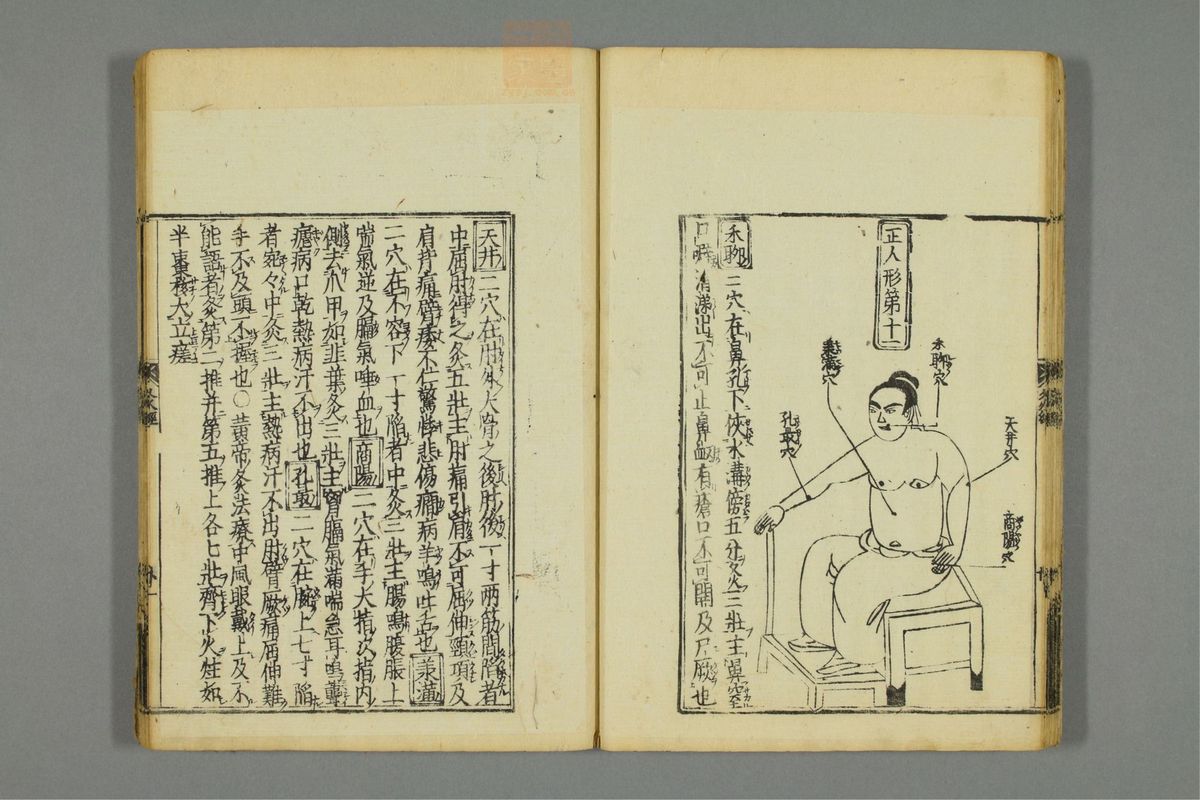 正人形第十一
禾聊穴
承滿穴
孔最穴
天井穴
商陽穴
禾聊 二穴在鼻孔下俠水溝傍五分灸三壯主鼻窒
口噼清涕出不可止鼻衄有瘡口不可開及尸厥也
天井 二穴在肘外大骨之後肘後一寸兩筋間陷者
中屈肘得之灸五壯主肘痛引肩不可屈伸頸項及
肩背痛臂痿不仁驚悸悲傷癇病羊鳴吐舌也 承滿
二穴在不容下一寸陷者中灸三壯主腸鳴腹脹上
喘氣逆及膈氣唾血也 商陽 二穴在手大指次指内
側去爪甲如韭葉灸三壯主胷膈氣滿喘急耳鳴聾
瘧病口乾熱病汗不出也 孔最 二穴在腕上七寸陷
者宛々中灸三壯主熱病汗不出肘臂厥痛屈伸難
手不及頭不握也○黃帝灸法療中風眼戴上及不
能語者灸第二椎并第五椎上各七壯齊下火炷如
半棗核大立瘥